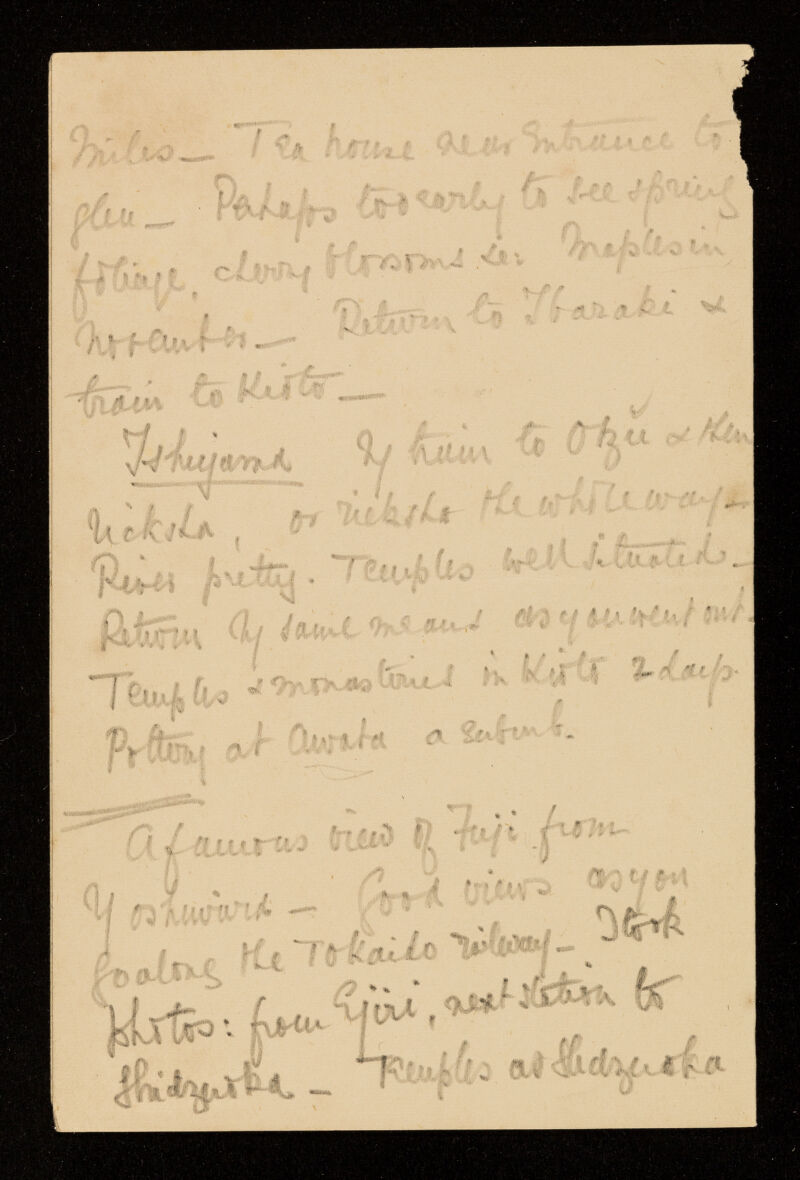 Miles — Tea house near Entrance to
glen — Perhaps too early to see spring
foliage, cherry blossoms &c: Maples in
November — Return to Ibaraki &
train to Kioto —
Ishiyama By train to Otzu & then
ricksha, or ricksha the whole way —
River pretty. Temples well situated —
Return by same means as you went out.
Temples & monasteries in Kioto 2 days.
Pottery at Awata a suburb.
A famous view of Fuji from
Yoshiwara — Good views as you
go along the Tokaido railway — I took
photos: from Ejiri, next station to
Shidzuoka — Temples at Shidzuoka